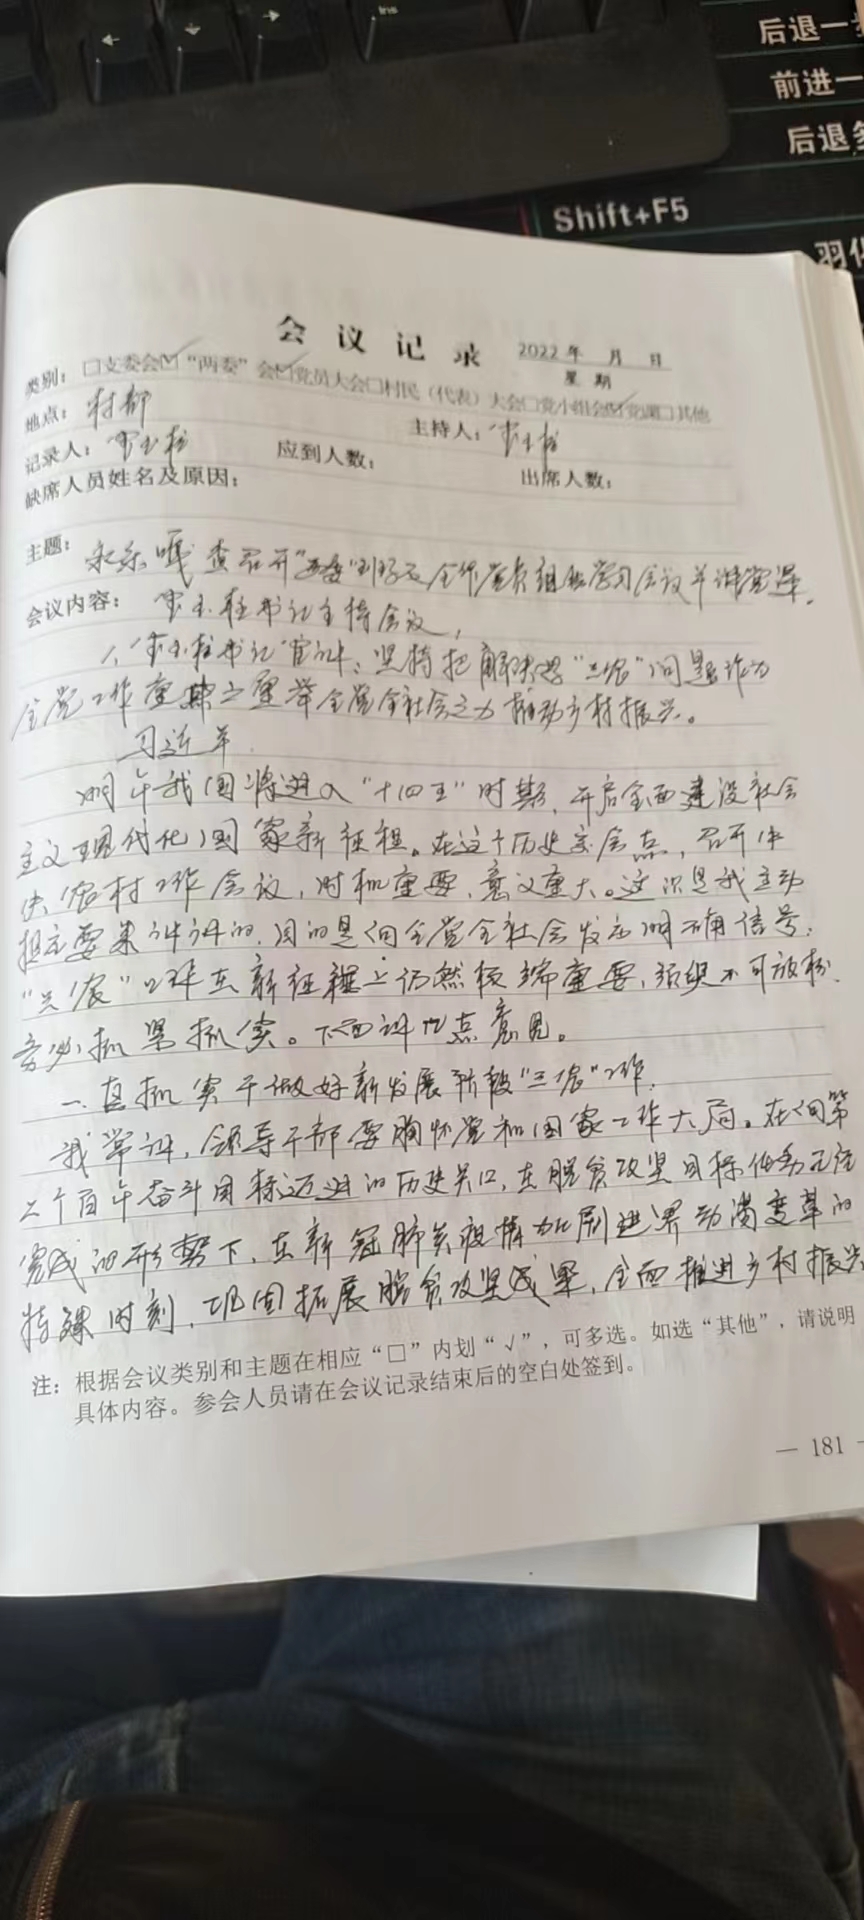 Ins
后退一
前进一
后退多
Shift+F5
会议记录
2022年 月 日
星期
类别:□支委会☑“两委”会☑党员大会□村民(代表)大会□党小组会☑党课□其他
地点:村部
主持人:
记录人:
应到人数:
出席人数:
缺席人员姓名及原因:
主题:永乐嘎查召开“两委”班子及全体党员组织学习会议并讲党课。
会议内容:书记主持会议,
1、书记宣讲:坚持把解决好“三农”问题作为
全党工作重中之重举全党全社会之力推动乡村振兴。
习近平
明年我国将进入“十四五”时期,开启全面建设社会
主义现代化国家新征程。在这个历史交会点,召开中
央农村工作会议,时机重要,意义重大。这次是我主动
提出要来讲讲的,目的是向全党全社会发出明确信号:
“三农”工作在新征程上仍然极端重要,须臾不可放松,
务必抓紧抓实。下面讲几点意见。
一、真抓实干做好新发展阶段“三农”工作。
我常讲,领导干部要胸怀党和国家工作大局。在向第
二个百年奋斗目标迈进的历史关口,在脱贫攻坚目标任务已经
完成的形势下,在新冠肺炎疫情加剧世界动荡变革的
特殊时刻,巩固拓展脱贫攻坚成果,全面推进乡村振兴
注:根据会议类别和主题在相应“□”内划“√”,可多选。如选“其他”,请说明
具体内容。参会人员请在会议记录结束后的空白处签到。
— 181 —